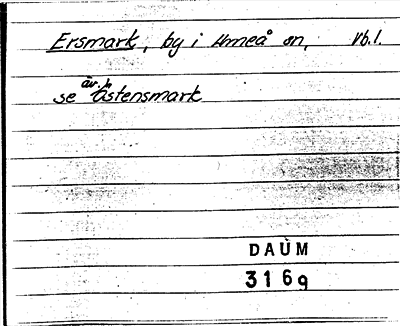 Ersmark, by i Umeå sn, Vb.l.
se äv. Östensmark
DAÙM
316g